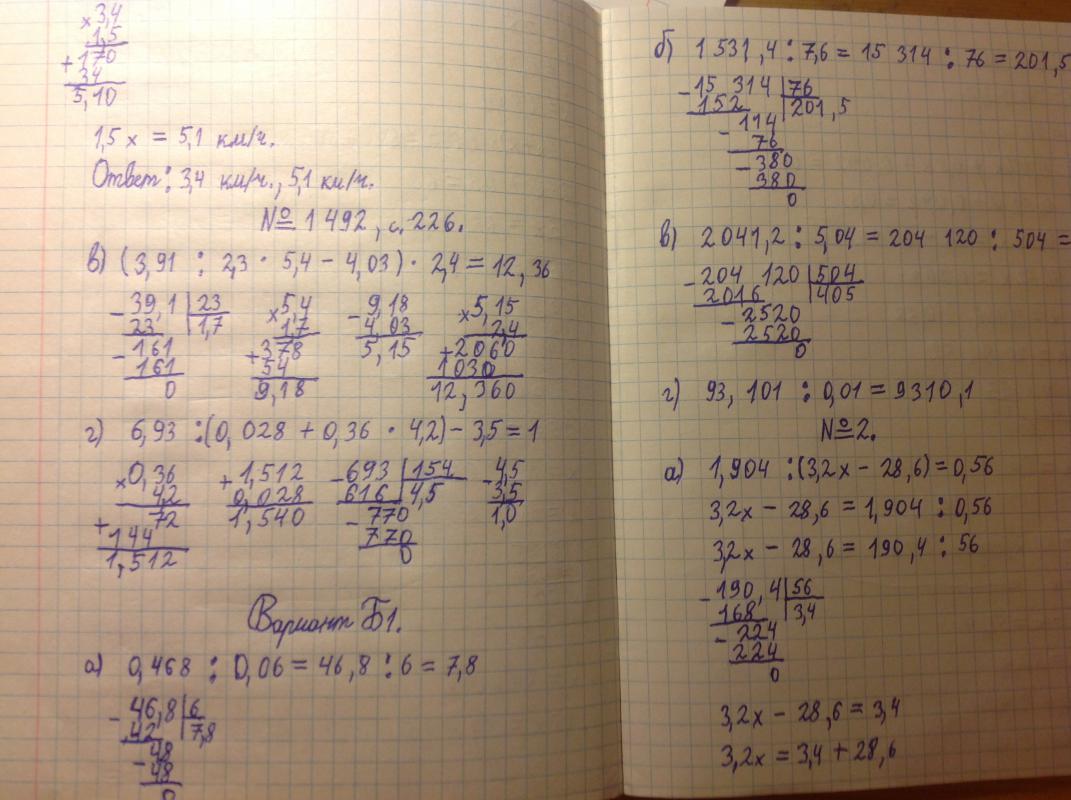 × 3,4
1,5
+ 170
34
5,10
1,5x = 5,1 км/ч.
Ответ: 3,4 км/ч., 5,1 км/ч.
№ 1492, с. 226.
в) (3,91 : 2,3 · 5,4 - 4,03) · 2,4 = 12,36
- 39,1 | 23 × 5,4 - 9,18 × 5,15
23 | 1,7 1,7 4,03 2,4
- 161 + 378 5,15 + 2060
161 54 1030
0 9,18 12,360
г) 6,93 : (0,028 + 0,36 · 4,2) - 3,5 = 1
× 0,36 + 1,512 - 693 | 154 - 4,5
4,2 0,028 616 | 4,5 3,5
+ 72 1,540 - 770 1,0
144 770
1,512 0
Вариант Б1.
а) 0,468 : 0,06 = 46,8 : 6 = 7,8
- 46,8 | 6
42 | 7,8
- 48
48
0
б) 1 531,4 : 7,6 = 15 314 : 76 = 201,5
- 15 314 | 76
152 | 201,5
- 114
76
- 380
380
0
в) 2041,2 : 5,04 = 204 120 : 504 =
- 204 120 | 504
2016 | 405
- 2520
2520
0
г) 93,101 : 0,01 = 9310,1
№ 2.
а) 1,904 : (3,2x - 28,6) = 0,56
3,2x - 28,6 = 1,904 : 0,56
3,2x - 28,6 = 190,4 : 56
- 190,4 | 56
168 | 3,4
- 224
224
0
3,2x - 28,6 = 3,4
3,2x = 3,4 + 28,6